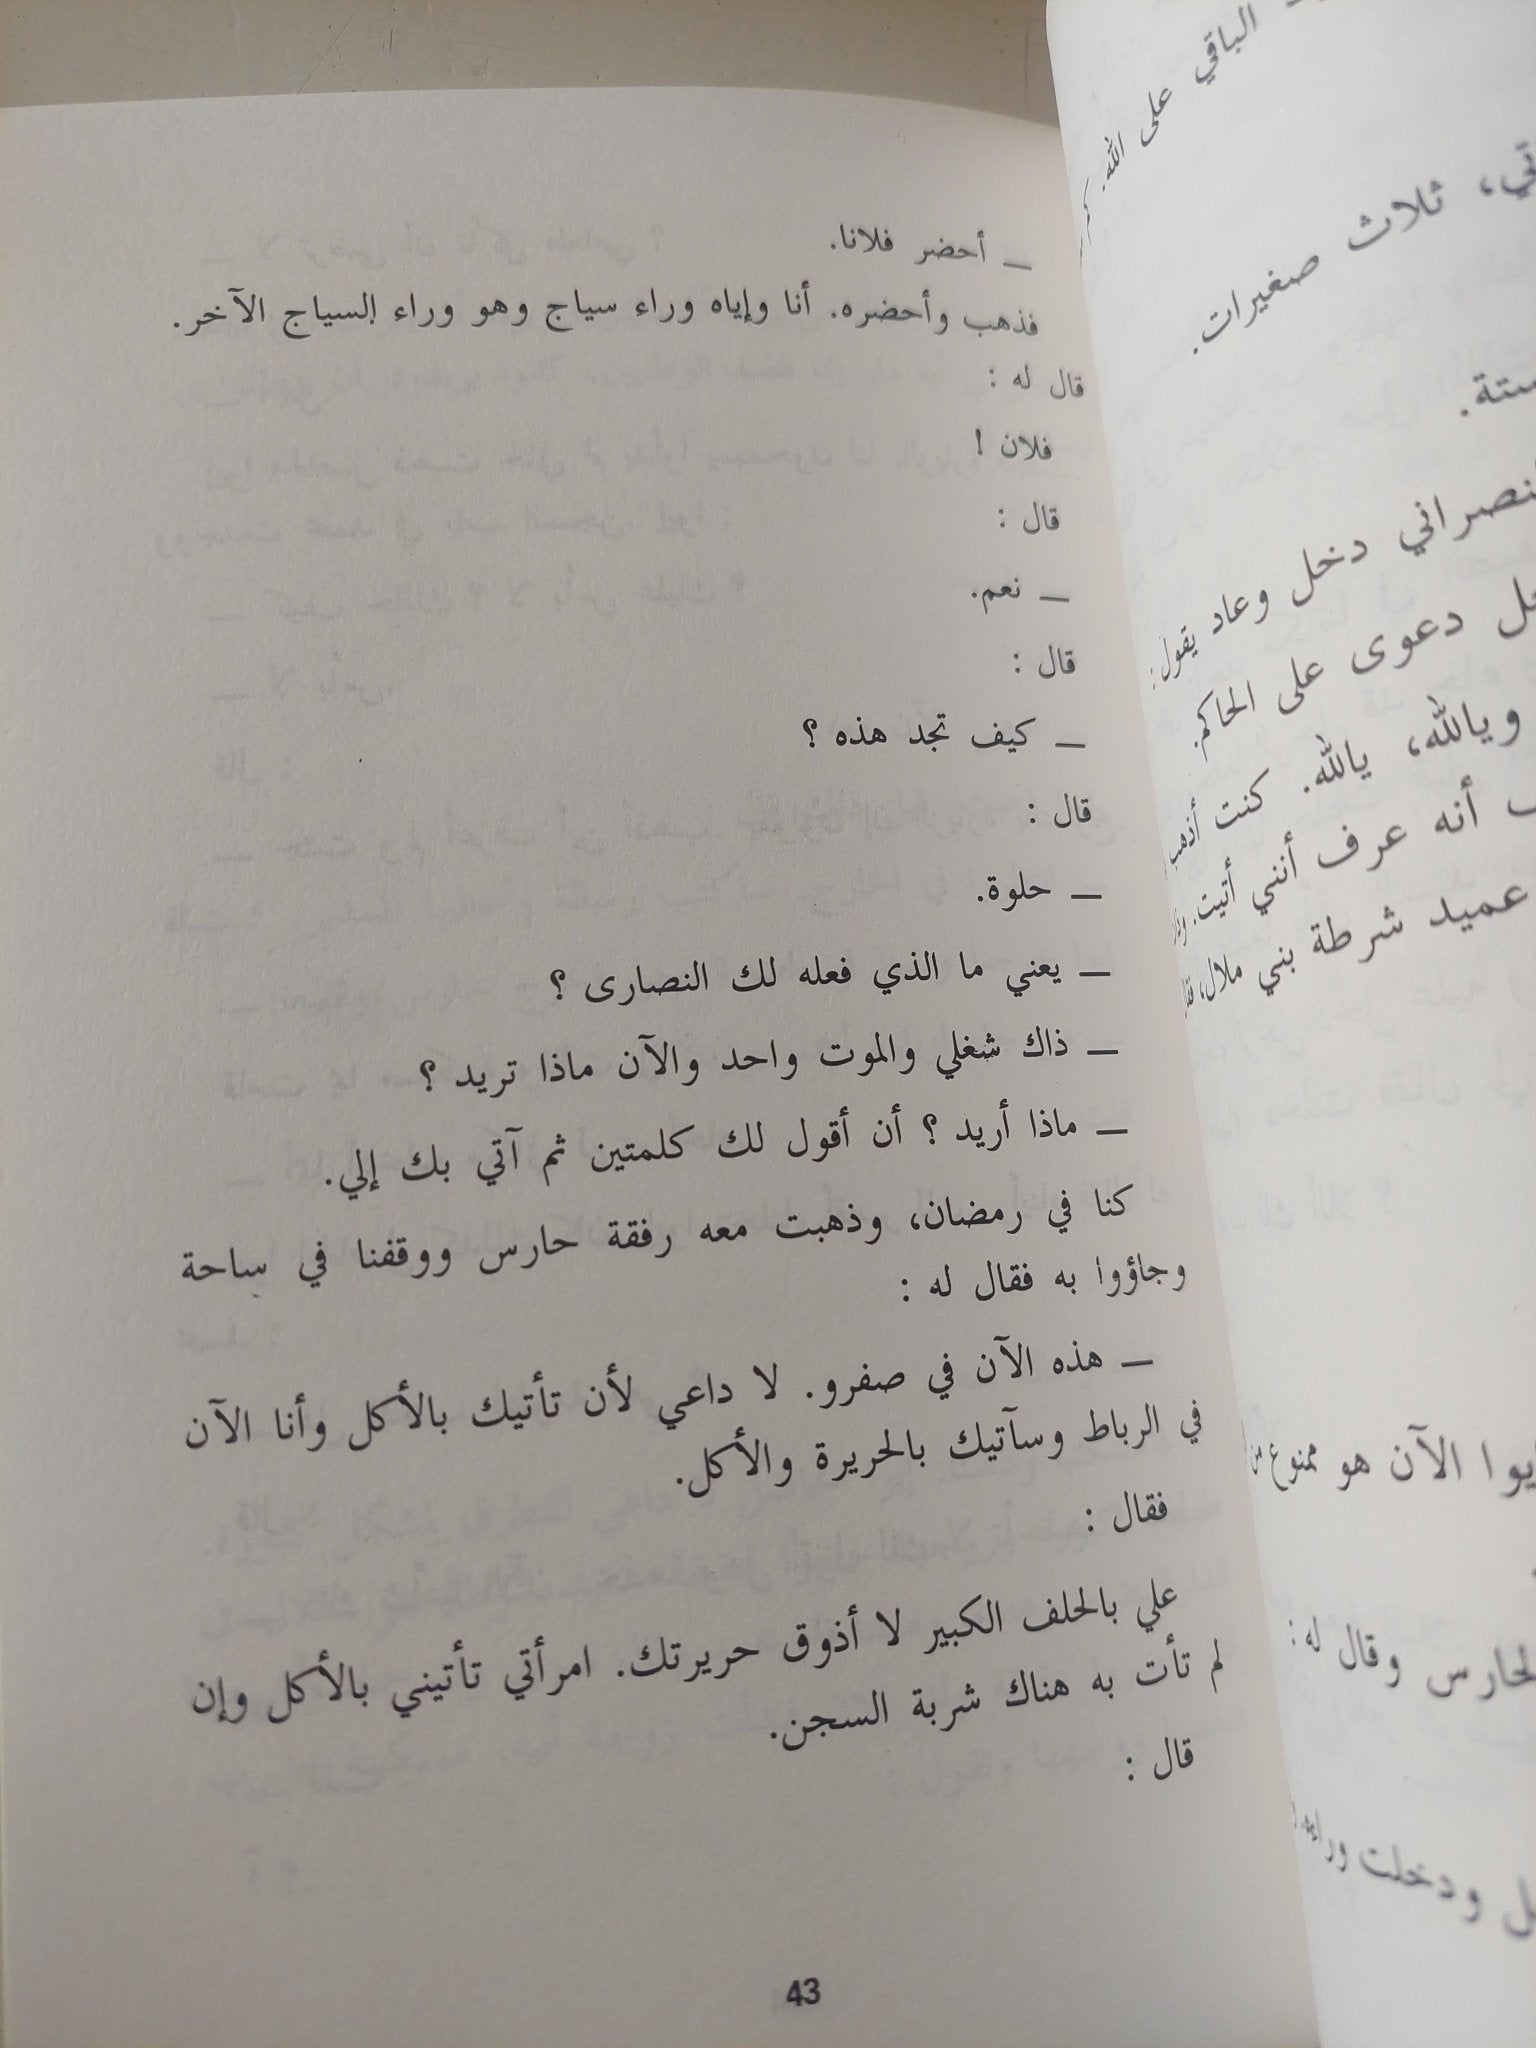 ــ أحضر فلانا.
فذهب وأحضره. أنا وإياه وراء سياج وهو وراء السياج الآخر.
قال له :
فلان !
قال :
ــ نعم.
قال :
ــ كيف تجد هذه ؟
قال :
ــ حلوة.
ــ يعني ما الذي فعله لك النصارى ؟
ــ ذاك شغلي والموت واحد والآن ماذا تريد ؟
ــ ماذا أريد ؟ أن أقول لك كلمتين ثم آتي بك إلي.
كنا في رمضان، وذهبت معه رفقة حارس ووقفنا في ساحة
وجاؤوا به فقال له :
ــ هذه الآن في صفرو. لا داعي لأن تأتيك بالأكل وأنا الآن
في الرباط وسآتيك بالحريرة والأكل.
فقال :
علي بالحلف الكبير لا أذوق حريرتك. امرأتي تأتيني بالأكل وإن
لم تأت به هناك شربة السجن.
قال :
43
الباقي على الله.
ثلاث صغيرات.
دخل وعاد يقول :
دعوى على الحاكم.
ويالله، يالله. كنت أذهب
أنه عرف أنني أتيت.
عميد شرطة بني ملال،
الآن هو ممنوع من
وقال له :
ودخلت